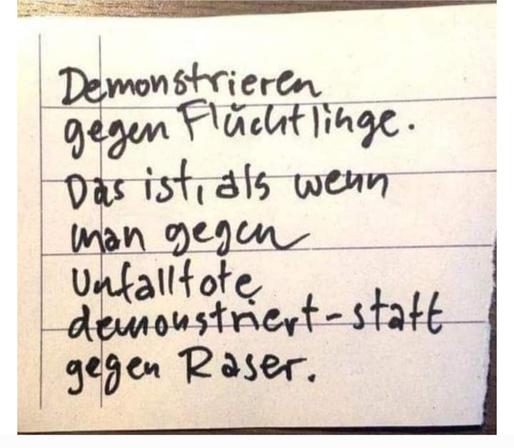 Demonstrieren
gegen Flüchtlinge.
Das ist, als wenn
man gegen
Unfalltote
demonstriert-statt
gegen Raser.